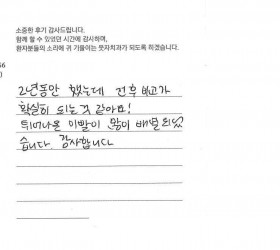 소중한 후기 감사드립니다.
함께 할 수 있었던 시간에 감사하며,
환자분들의 소리에 귀 기울이는 뜻자치과가 되도록 하겠습니다.
2년동안 했는데 전후 비교가
확실히 되는것 같아요!
튀어나온 이빨이 많이 배열되었
습니다. 감사합니다